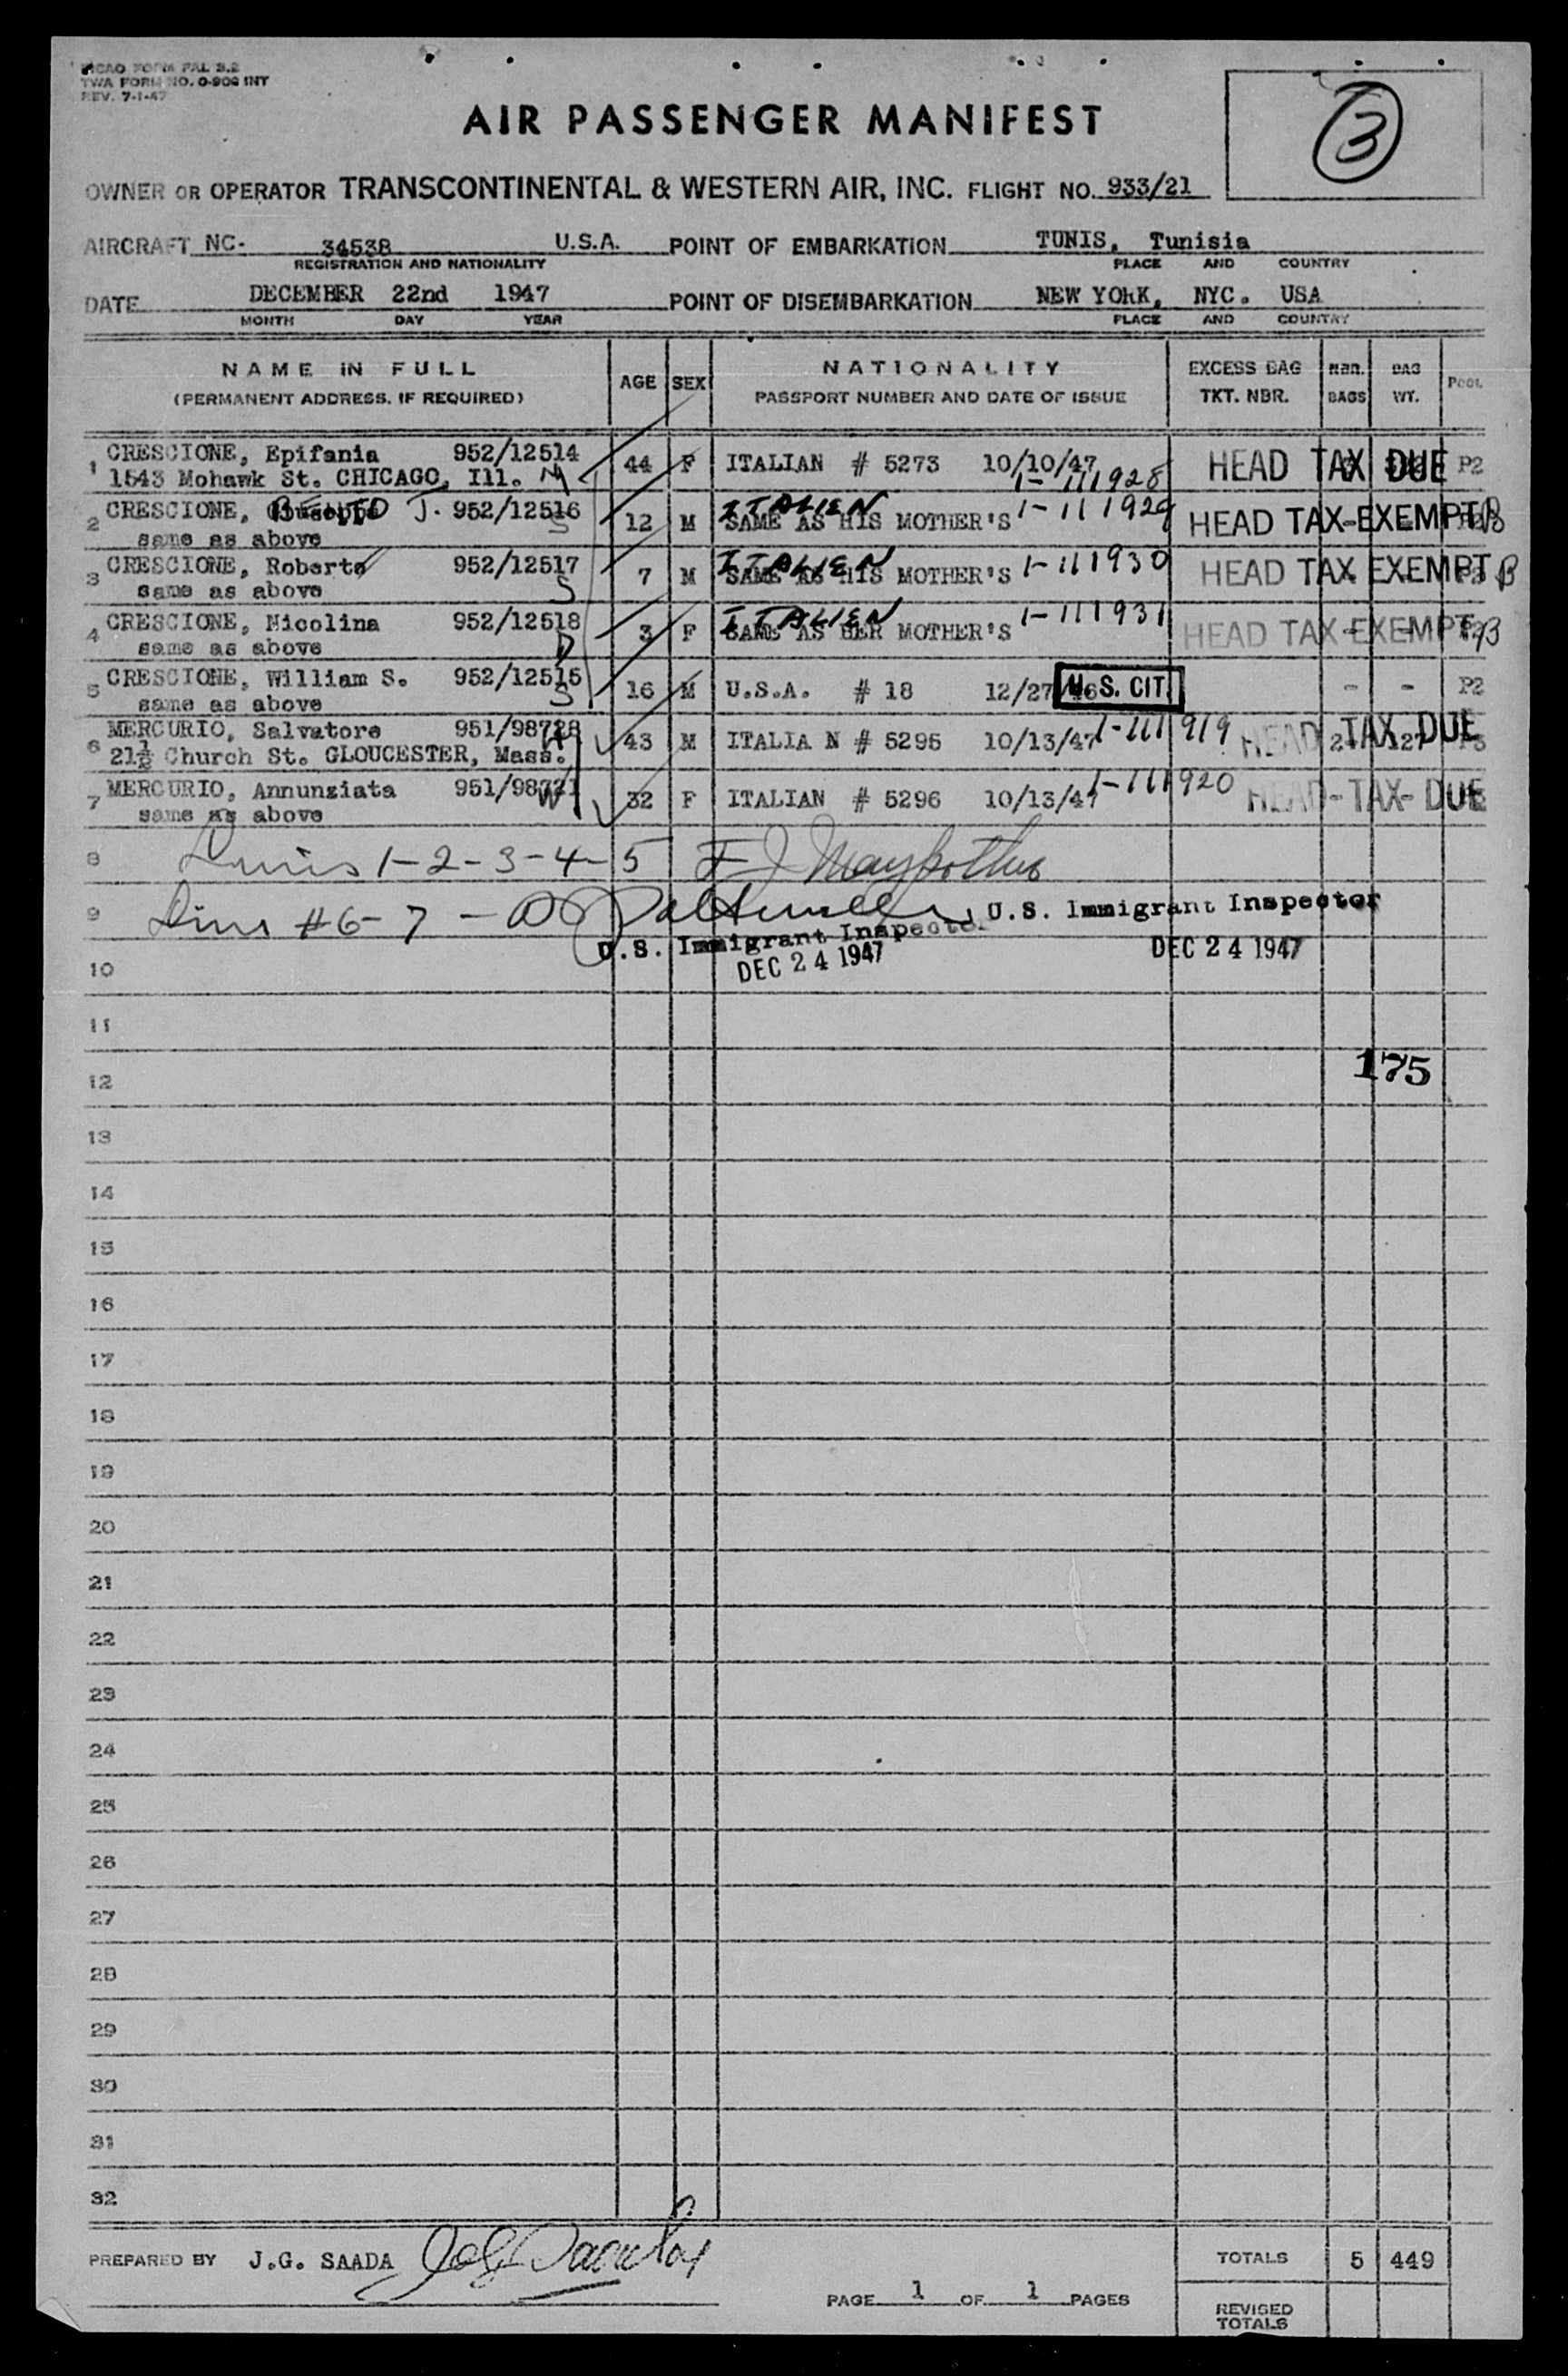 ICAO FORM PAL 3.2
TWA FORM NO. O-906 INT
REV. 7-1-47
AIR PASSENGER MANIFEST
3
OWNER OR OPERATOR TRANSCONTINENTAL & WESTERN AIR, INC. FLIGHT NO. 933/21
AIRCRAFT NC- 34538 U.S.A. POINT OF EMBARKATION TUNIS, Tunisia
REGISTRATION AND NATIONALITY PLACE AND COUNTRY
DATE DECEMBER 22nd 1947 POINT OF DISEMBARKATION NEW YORK, NYC. USA
MONTH DAY YEAR PLACE AND COUNTRY
NAME IN FULL AGE SEX NATIONALITY EXCESS BAG NBR. BAG POOL
(PERMANENT ADDRESS. IF REQUIRED) PASSPORT NUMBER AND DATE OF ISSUE TKT. NBR. BAGS WT.
1 CRESCIONE, Epifania 952/12514 44 F ITALIAN # 5273 10/10/47 HEAD TAX DUE P2
1543 Mohawk St. CHICAGO, Ill. M 1-111928
2 CRESCIONE, BENITO J. 952/12516 12 M ITALIEN SAME AS HIS MOTHER'S 1-111929 HEAD TAX-EXEMPT
same as above S
3 CRESCIONE, Roberto 952/12517 7 M ITALIEN SAME AS HIS MOTHER'S 1-111930 HEAD TAX EXEMPT
same as above S
4 CRESCIONE, Nicolina 952/12518 3 F ITALIEN SAME AS HER MOTHER'S 1-111931 HEAD TAX-EXEMPT
same as above
5 CRESCIONE, William S. 952/12515 16 M U.S.A. # 18 12/27/46 U.S. CIT. - - P2
same as above S
6 MERCURIO, Salvatore 951/98728 43 M ITALIA N # 5295 10/13/47 1-111919 HEAD TAX DUE
21½ Church St. GLOUCESTER, Mass.
7 MERCURIO, Annunziata 32 F ITALIAN # 5296 10/13/47 1-111920 HEAD-TAX-DUE
same as above
8 1-2-3-4-5
9 #6-7 U.S. Immigrant Inspector
U.S. Immigrant Inspector
10 DEC 24 1947 DEC 24 1947
11
12 175
13
14
15
16
17
18
19
20
21
22
23
24
25
26
27
28
29
30
31
32
PREPARED BY J.G. SAADA TOTALS 5 449
PAGE 1 OF 1 PAGES
REVISED
TOTALS